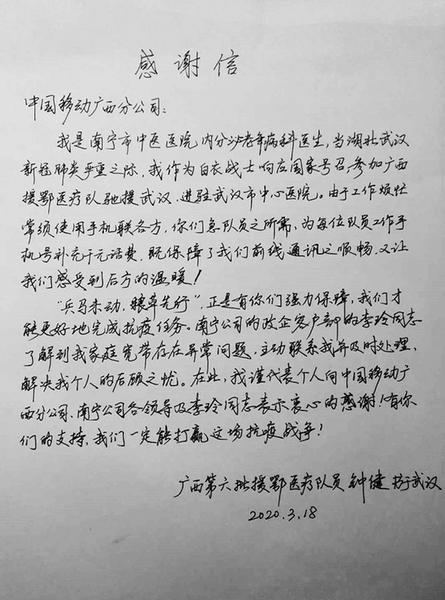 感谢信
中国移动广西分公司：
我是南宁市中医医院内分泌老年病科医生，当湖北武汉
新冠肺炎严重之际，我作为白衣战士响应国家号召，参加广西
援鄂医疗队驰援武汉，进驻武汉市中心医院。由于工作烦忙
常须使用手机联各方，你们急队员之所需，为每位队员工作手
机号补充千元话费，既保障了我们前线通讯之顺畅，又让
我们感受到后方的温暖！
“兵马未动，粮草先行”，正是有你们强力保障，我们才
能更好地完成抗疫任务。南宁公司的政企客户部的李玲同志
了解到我家庭宽带存在异常问题，主动联系我并及时处理，
解决我个人的后顾之忧。在此，我谨代表个人向中国移动广
西分公司、南宁公司各领导及李玲同志表示衷心的感谢！有你
们的支持，我们一定能打赢这场抗疫战争！
广西第六批援鄂医疗队员 钟健 书于武汉
2020.3.18